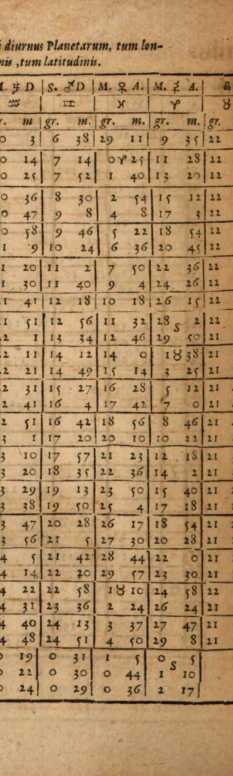 diurnus Planetarum, tum lon-
nis, tum latitudinis.
♃ D | S. ♂ D | M. ♀ A. | M. ☿ A.
♒ | ♊ | ♓ | ♈
m | gr. m. | gr. m. | gr. m. | gr.
3 | 6 38 | 29 11 | 9 35 | 22
14 | 7 14 | 0♈25 | 11 28 | 22
25 | 7 52 | 1 40 | 13 20 | 22
36 | 8 30 | 2 54 | 15 12 | 22
47 | 9 8 | 4 8 | 17 3 | 22
58 | 9 46 | 5 22 | 18 54 | 22
9 | 10 24 | 6 36 | 20 45 | 22
20 | 11 2 | 7 50 | 22 36 | 22
30 | 11 40 | 9 4 | 24 26 | 22
41 | 12 18 | 10 18 | 26 15 | 22
51 | 12 56 | 11 32 | 28 S 2 | 22
2 1 | 13 34 | 12 46 | 29 50 | 21
2 11 | 14 12 | 14 0 | 1♉38 | 21
2 21 | 14 49 | 15 14 | 3 25 | 21
2 31 | 15 27 | 16 28 | 5 12 | 21
2 41 | 16 4 | 17 42 | 7 0 | 21
2 51 | 16 42 | 18 56 | 8 46 | 21
3 1 | 17 20 | 20 10 | 10 22 | 21
3 10 | 17 57 | 21 23 | 12 18 | 21
3 20 | 18 35 | 22 36 | 14 2 | 21
3 29 | 19 13 | 23 50 | 15 40 | 21
3 38 | 19 50 | 25 4 | 17 18 | 21
3 47 | 20 28 | 26 17 | 18 54 | 21
3 56 | 21 5 | 27 30 | 20 28 | 21
4 5 | 21 42 | 28 44 | 22 0 | 21
4 14 | 22 20 | 29 57 | 23 30 | 21
4 22 | 22 58 | 1♉10 | 24 58 | 22
4 31 | 23 36 | 2 24 | 26 24 | 21
4 40 | 24 13 | 3 37 | 27 47 | 21
4 48 | 24 51 | 4 50 | 29 8 | 21
0 19 | 0 31 | 1 5 | 0 S 5
0 22 | 0 30 | 0 44 | 1 10
0 24 | 0 29 | 0 36 | 2 17